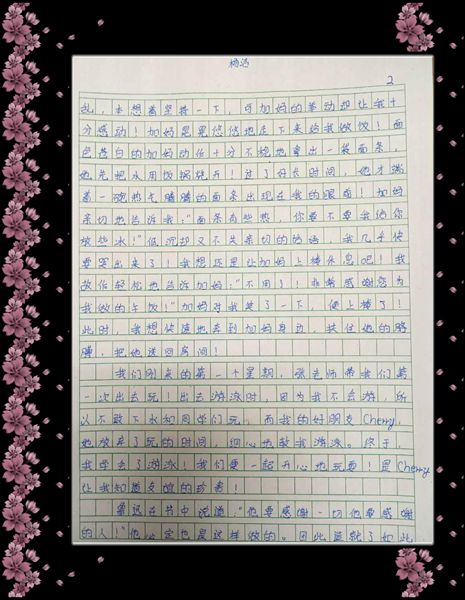 杨涵
2
乱，本想着坚持一下，可加妈的举动却让我十
分感动！加妈晃晃悠悠地走下来给我做饭！面
色苍白的加妈动作十分不娩地拿出一袋面条，
她先把水用饭锅烧开！过了好长时间，她才端
着一碗热气腾腾的面条出现在我的眼前！加妈
亲切地告诉我："面条有些热，你要不要我给你
放些冰！"低沉却又不失亲切的话语，我几乎快
要哭出来了！我想还是让加妈上楼休息吧！我
故作轻松地告诉加妈："不用了！非常感谢您为
我做的午饭！"加妈对我笑了一下，便上楼了！
此时，我想快速地走到加妈身边，扶住她的胳
膊，把她送回房间！
我们刚来的第一个星期，张老师带我们第
一次出去玩！出去游泳时，因为我不会游，所
以不敢下水和同学们玩，而我的好朋友Cherry，
她放弃了玩的时间，细心地教我游泳。终于，
我学会了游泳！我们要一起开心地玩耍！是Cherry
让我知道友谊的珍贵！
鲁迅在书中说道："他要感谢一切他要感谢
的人！"他一定也是这样做的。因此造就了如此